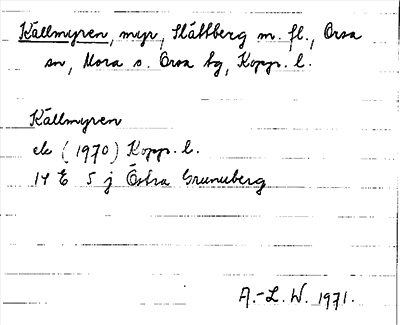 Källmyren, myr, Slättberg m. fl., Orsa
sn, Mora o. Orsa tg, Kopp. l.
Källmyren
ek (1970) Kopp. l.
14 E 5 j Östra Grunuberg
A.-L. W. 1971.